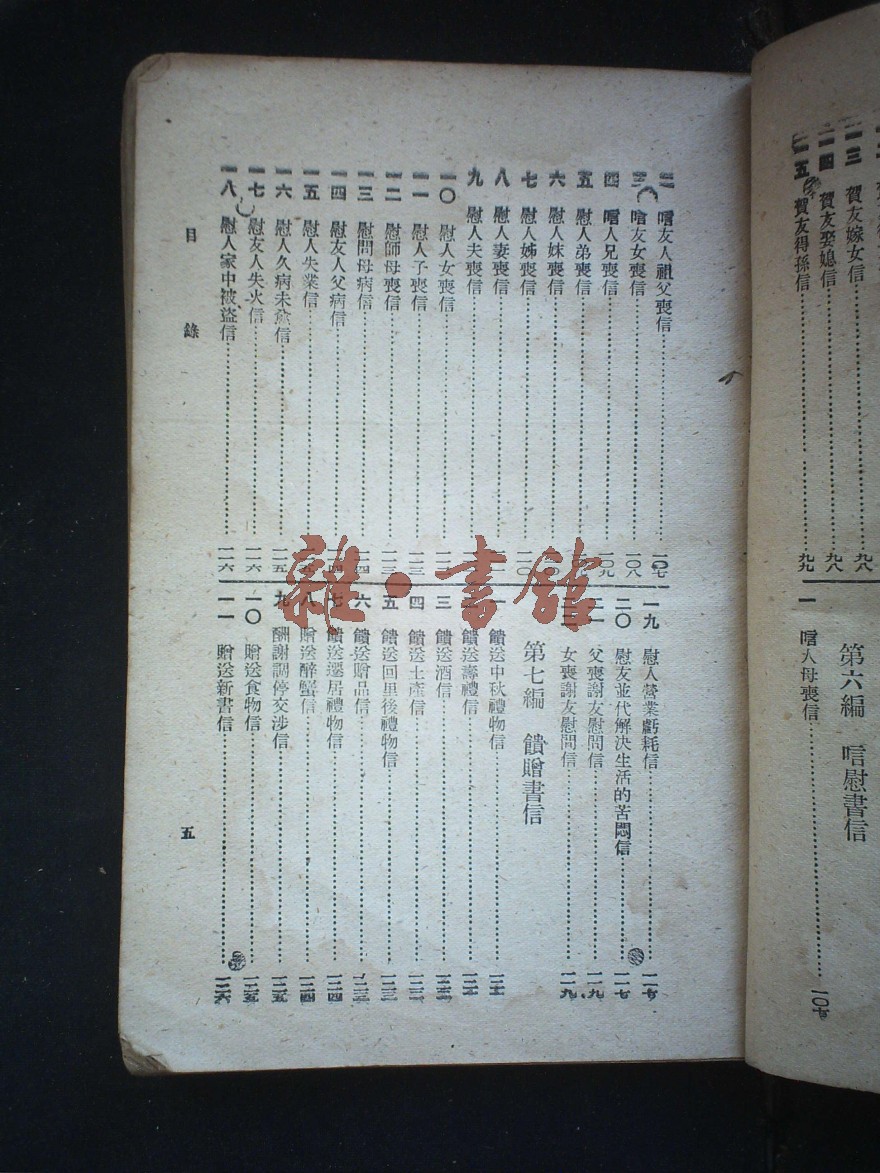 一三 賀友嫁女信 九八
一四 賀友娶媳信 九八
一五 賀友得孫信 九九
第六編 唁慰書信
一 唁人母喪信 一〇七
二 唁友人祖父喪信 一〇七
三 唁友女喪信 一〇八
四 唁人兄喪信 一〇九
五 慰人弟喪信
六 慰人妹喪信
七 慰人姊喪信 一一〇
八 慰人妻喪信
九 慰人夫喪信
一〇 慰人女喪信
一一 慰人子喪信
一二 慰師母喪信 一一三
一三 慰問母病信 一一四
一四 慰友人父病信
一五 慰人失業信
一六 慰人久病未愈信 一一五
一七 慰友人失火信 一一六
一八 慰人家中被盜信 一一六
一九 慰人營業虧耗信 一一七
二〇 慰友並代解決生活的苦悶信 一一七
二一 父喪謝友慰問信 一一九
女喪謝友慰問信 一一九
第七編 饋贈書信
饋送中秋禮物信
二 饋送壽禮信
三 饋送酒信
四 饋送土產信
五 饋送回里後禮物信
六 饋送贈品信
七 饋送遷居禮物信 一二四
八 贈送醉蟹信 一二四
九 酬謝調停交涉信 一二五
一〇 贈送食物信 一二五
一一 贈送新書信 一二六
目錄
五
雜·書館